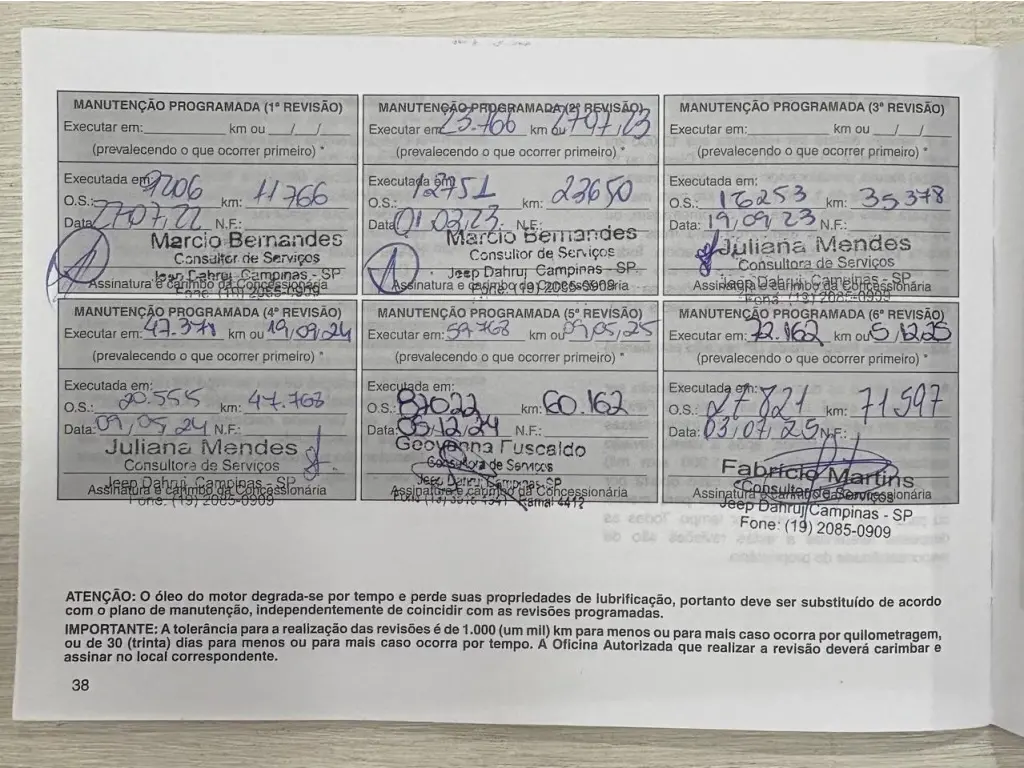 MANUTENÇÃO PROGRAMADA (1ª REVISÃO)
Executar em:____________ km ou ___/___/____
(prevalecendo o que ocorrer primeiro) *
Executada em:
O.S.: 9206 km: 11766
Data: 27/07/22 N.F.:
Marcio Bernandes
Consultor de Serviços
Jeep Dahruj Campinas - SP
Assinatura e carimbo da Concessionária
Fone: (19) 2085-0909
MANUTENÇÃO PROGRAMADA (2ª REVISÃO)
Executar em: 23.766 km ou 27/07/23
(prevalecendo o que ocorrer primeiro) *
Executada em:
O.S.: 12751 km: 23650
Data: 01/03/23 N.F.:
Marcio Bernandes
Consultor de Serviços
Jeep Dahruj Campinas - SP
Assinatura e carimbo da Concessionária
Fone: (19) 2085-0909
MANUTENÇÃO PROGRAMADA (3ª REVISÃO)
Executar em:____________ km ou ___/___/____
(prevalecendo o que ocorrer primeiro) *
Executada em:
O.S.: 16253 km: 35378
Data: 19/09/23 N.F.:
Juliana Mendes
Consultora de Serviços
Jeep Dahruj Campinas - SP
Assinatura e carimbo da Concessionária
Fone: (19) 2085-0909
MANUTENÇÃO PROGRAMADA (4ª REVISÃO)
Executar em: 47.378 km ou 19/09/24
(prevalecendo o que ocorrer primeiro) *
Executada em:
O.S.: 20.555 km: 47.768
Data: 09/05/24 N.F.:
Juliana Mendes
Consultora de Serviços
Jeep Dahruj Campinas - SP
Assinatura e carimbo da Concessionária
Fone: (19) 2085-0909
MANUTENÇÃO PROGRAMADA (5ª REVISÃO)
Executar em: 59768 km ou 09/05/25
(prevalecendo o que ocorrer primeiro) *
Executada em:
O.S.: 87022 km: 60.162
Data: 05/12/24 N.F.:
Geovanna Fuscaldo
Consultora de Serviços
Jeep Dahruj Campinas-SP
Assinatura e carimbo da Concessionária
Ramal 4412
MANUTENÇÃO PROGRAMADA (6ª REVISÃO)
Executar em: 72.162 km ou 5/12/25
(prevalecendo o que ocorrer primeiro) *
Executada em:
O.S.: 27821 km: 71597
Data: 03/07/25 N.F.:
Fabricio Martins
Consultor de Serviços
Assinatura e carimbo da Concessionária
Jeep Dahruj Campinas - SP
Fone: (19) 2085-0909
ATENÇÃO: O óleo do motor degrada-se por tempo e perde suas propriedades de lubrificação, portanto deve ser substituído de acordo
com o plano de manutenção, independentemente de coincidir com as revisões programadas.
IMPORTANTE: A tolerância para a realização das revisões é de 1.000 (um mil) km para menos ou para mais caso ocorra por quilometragem,
ou de 30 (trinta) dias para menos ou para mais caso ocorra por tempo. A Oficina Autorizada que realizar a revisão deverá carimbar e
assinar no local correspondente.
38